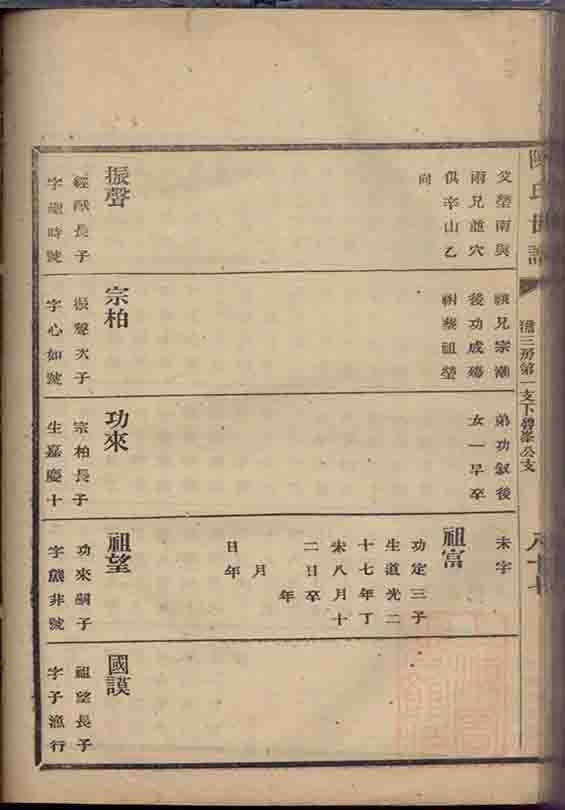 陳氏世譜
三房第一支下碧峯公支
八十七
父塋南與
兩兄並穴
俱辛山乙
向
振聲
經猷長子
字
時號
繼兄宗潮
後功成殤
祔葬祖塋
宗柏
振聲次子
字心如號
弟功敘後
女一早卒
功來
宗柏長子
生嘉慶十
未字
祖富
功定三子
生道光二
十七年丁
未八月十
二日卒
年
月
日年
祖望
功來嗣子
字
非號
國謨
祖望長子
字子漁行